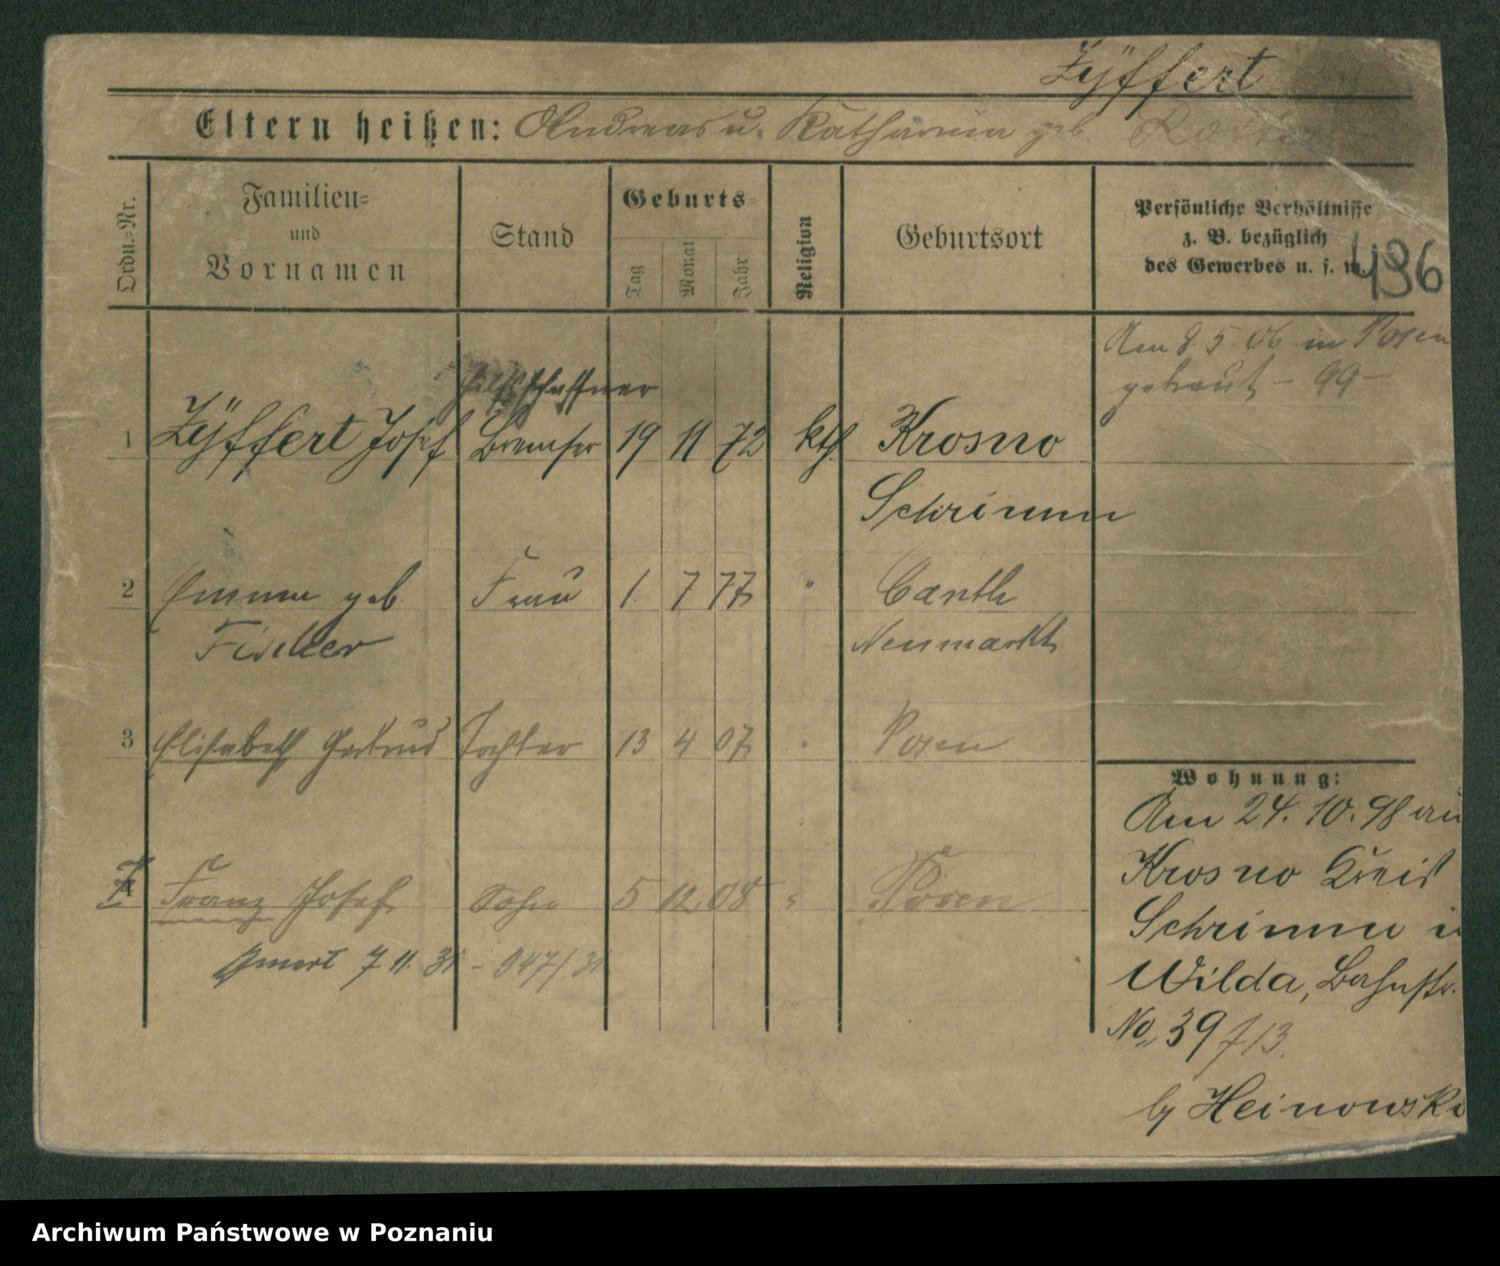 Zÿffert
Eltern heißen: Andreas u. Katharina geb.
Ordn.-Nr.
Familien-
und
Vornamen
Stand
Geburts-
Tag
Monat
Jahr
Religion
Geburtsort
Persönliche Verhältnisse
z. B. bezüglich
des Gewerbes u. s. w.
496
Am 8.5.06 in Posen
getraut - 99 -
Hilfsschaffner
1 Zÿffert Josef Bremser 19 11 72 kth. Krosno
Schrimm
2 Emma geb. Frau 1. 7 77 " Canth
Fischer Neumarkt
3 Elisabeth Gertrud Tochter 13 4 07 " Posen
4 Franz Josef Sohn 5 12 08 " Posen
7.11.31 - 947/31
Wohnung:
Am 24.10.98 aus
Krosno Kreis
Schrimm in
Wilda, Bahnstr.
No. 39 f 13.
by Heinowski
Archiwum Państwowe w Poznaniu